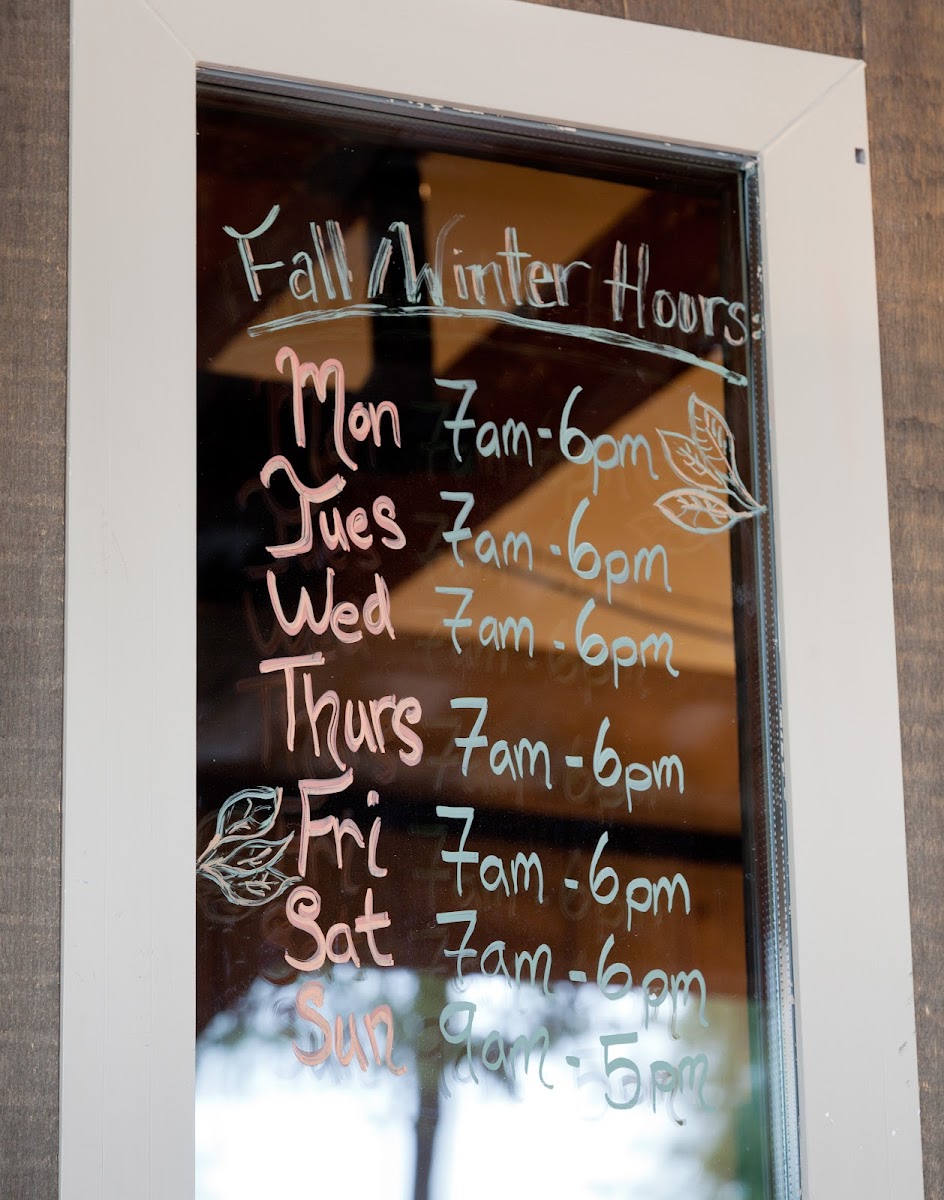 Fall/Winter Hours
Mon 7am-6pm
Tues 7am-6pm
Wed 7am-6pm
Thurs 7am-6pm
Fri 7am-6pm
Sat 7am-6pm
Sun 9am-5pm